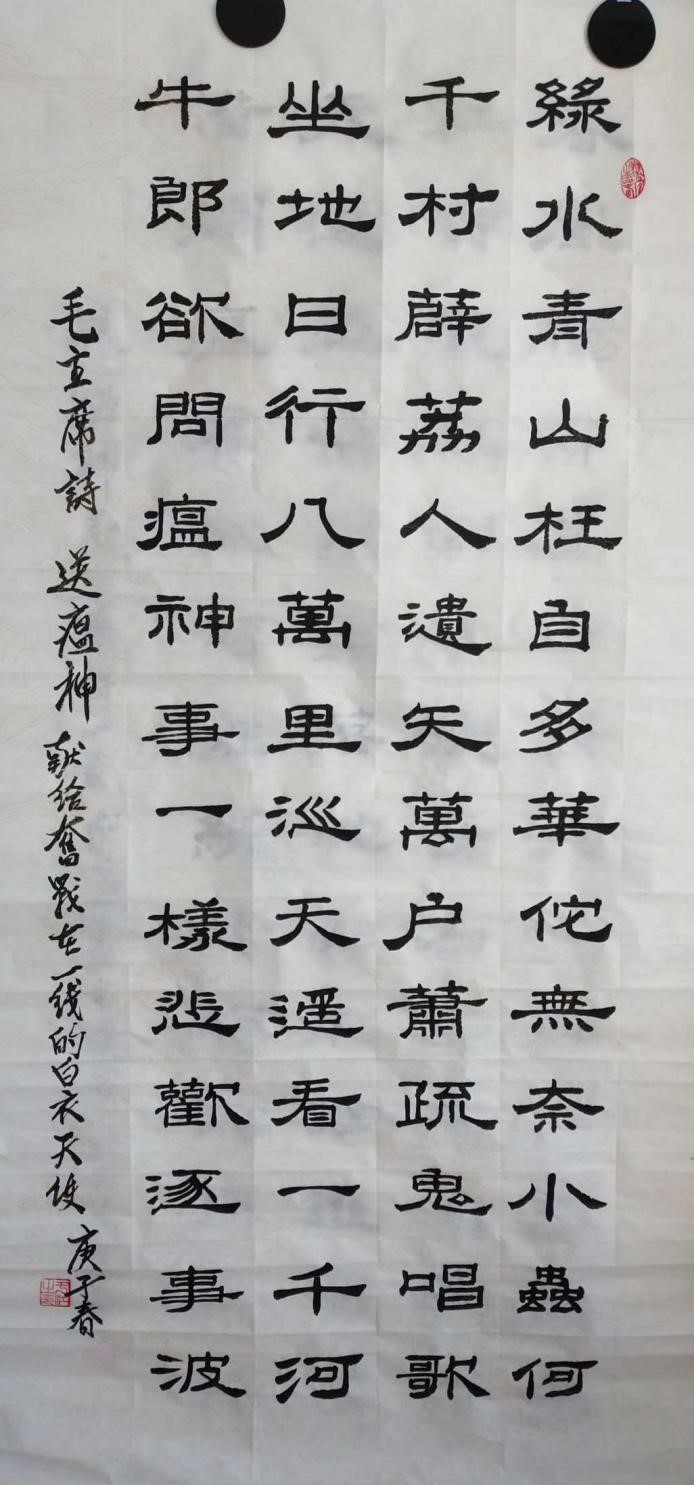 緑水青山枉自多華佗無奈小蟲何
千村薜荔人遺矢萬户蕭疏鬼唱歌
坐地日行八萬里巡天遥看一千河
牛郎欲問瘟神事一樣悲歡逐事波
毛主席詩 送瘟神 献给奮戰在一线的白衣天使 庚子春